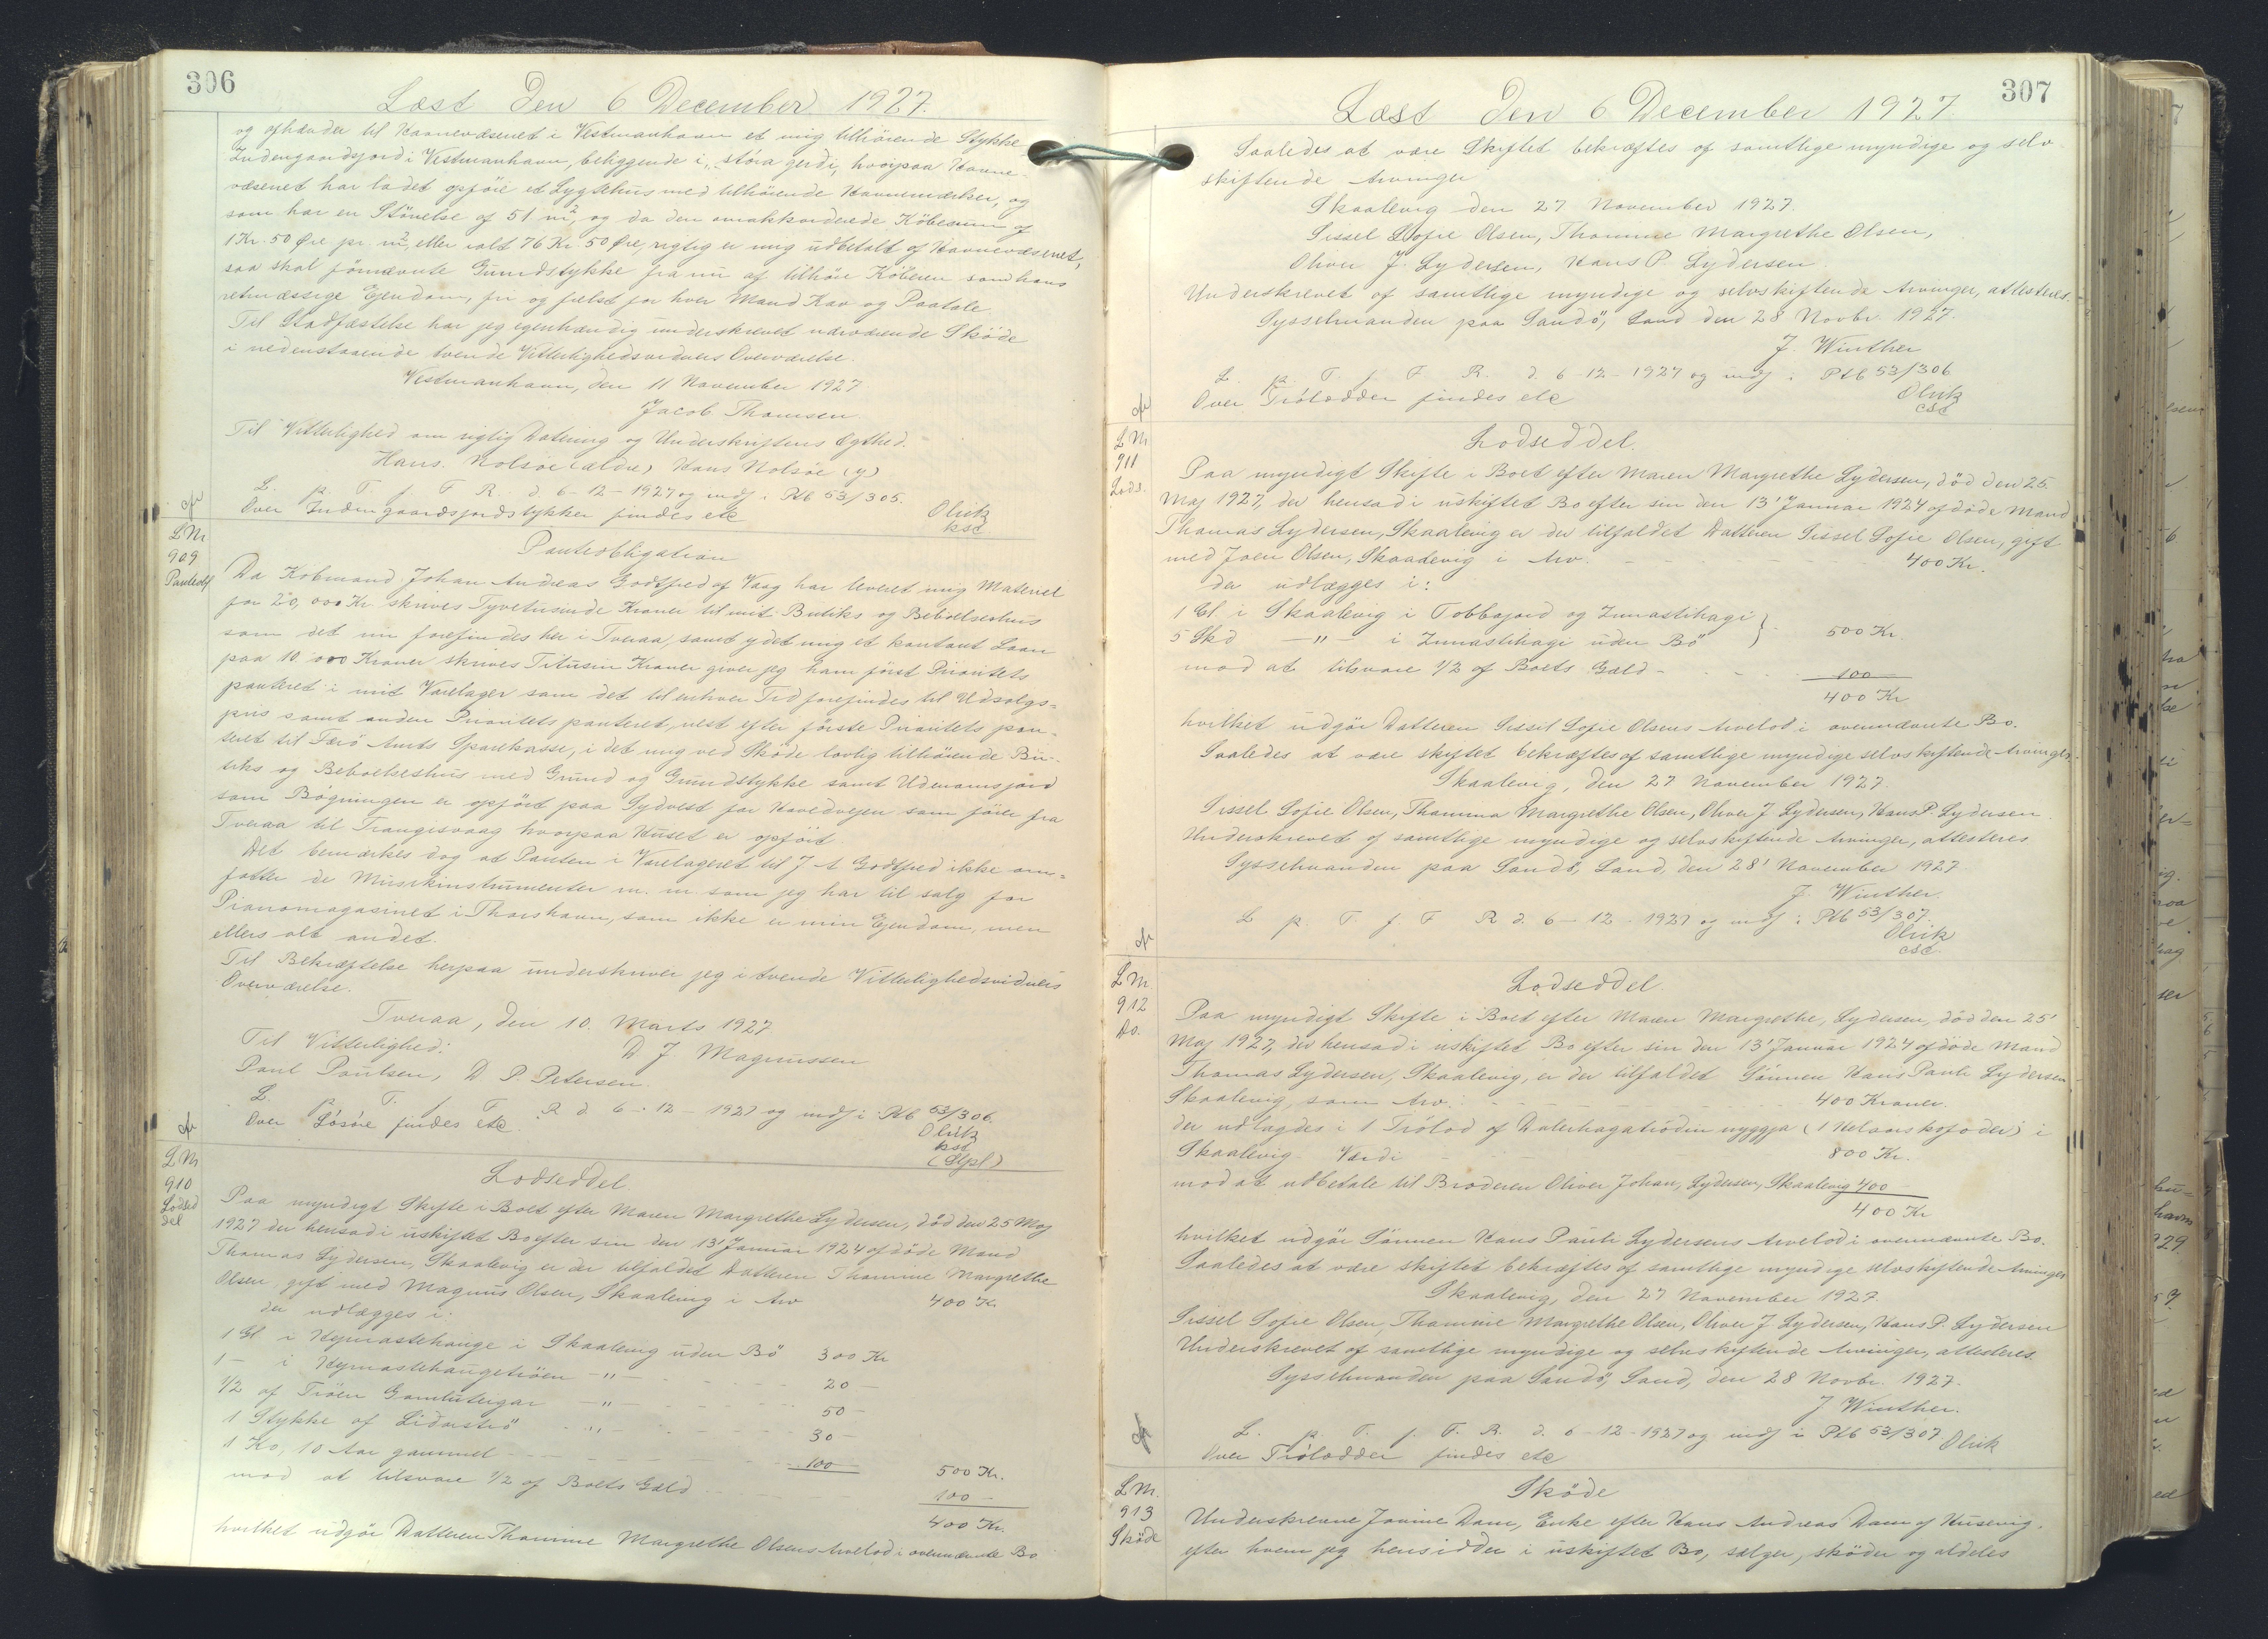 306
Læst den 6 December 1927.
og afhænder til Havnevæsenet i Vestmanhavn et mig tilhörende Stykke
Indengaardsjord i Vestmanhavn, beliggende i "stóra gerdi", hvorpaa Havne-
væsenet har ladet opföre et Lygtehus med tilhörende Havnemærker, og
som har en Störrelse af 51 m², og da den omakkorderede Köbesum af
1 Kr. 50 Øre pr. m², eller ialt 76 Kr. 50 Øre, rigtig er mig udbetalt af Havnevæsenet,
saa skal fornævnte Grundstykke fra nu af tilhöre Köberen som hans
retmæssige Ejendom, fri og frelst for hver Mand Krav og Paatale.
Til Stadfæstelse har jeg egenhændig underskrevet nærværende Sköde
i nedenstaaende tvende Vitterlighedsvidners Overværelse.
Vestmanhavn, den 11 November 1927
Jacob Thomsen.
Til Vitterlighed om rigtig Datering og Underskriftens Ægthed.
Hans Nolsöe (ældre) Hans Nolsöe (y)
L. p. T. f. F. R. d. 6-12-1927 og indf i Ptb 53/305.
Over Indengaardsjordstykker findes etc
Olrik
ksc
L Nr
909
Panteobl
Panteobligation
Da Kobmand Johan Andreas Godtfred af Vaag har leveret mig Materiel
for 20,000 Kr. skrives Tyvetusinde Kroner til mit Butiks og Beboelseshus
som det nu forefindes her i Tveraa, samt ydet mig et kontant Laan
paa 10 000 Kroner skrives Titusin Kroner giver jeg ham först Prioritets
panteret i mit Varelager som det til enhver Tid forefindes til Udsalgs=
pris samt anden Prioritets panteret, næst efter förste Prioritets pan-
teret til Færö Amts Sparekasse, i det mig ved Sköde lovlig tilhörende Bu-
tiks og Beboelseshus med Grund og Grundstykke samt Udenomsjord
som Bögningen er opfört paa Sydvest for Hovedvejen som förer fra
Tveraa til Trangisvaag hvorpaa Huset er opfört
Det bemærkes dog at Panten i Varelageret til J A Godtfred ikke om=
fatter de Musikinstrumenter m. m. som jeg har til salg for
Pianomagasinet i Thorshavn, som ikke er min Ejendom, men
ellers alt andet.
Til Bekræftelse herpaa underskriver jeg i tvende Vitterlighedsvidners
Overværelse.
Tveraa, den 10. Marts 1927.
Til Vitterlighed:
D J Magnussen
Paul Poulsen, D. P. Petersen.
L. p. T. f. F. R d. 6-12-1927 og indf i Ptb 53/306.
Over Lösöre findes etc.
Olrik
ksc
L Nr
910
Lodsed
del
Lodseddel.
Paa myndigt Skifte i Boet efter Maren Margrethe Lydersen, död den 25 Maj
1927 der hensad i uskiftet Bo efter sin den 13' Januar 1924 afdöde Mand
Thomas Lydersen, Skaalevig er der tilfaldet Datteren Thomine Margrethe
Olsen, gift med Magnus Olsen, Skaalevig i Arv 400 Kr.
der udlægges i:
1 Gl i Heimastehauge i Skaalevig uden Bö 300 Kr
1 - i Heimastehaugetröen -"- 20 -
1/2 af Tröen Gamluteigar -"- 50 -
1 Stykke af Lidarströ -"- 30 -
1 Ko, 10 Aar gammel 100 500 Kr.
mod at tilsvare 1/2 af Boets Gæld 100 -
400 Kr.
hvilket udgör Datteren Thomine Margrethe Olsens Arvelod i ovennævnte Bo
307
Læst den 6 December 1927.
Saaledes at være Skiftet bekræftes af samtlige myndige og selv
skiftende Arvinger
Skaalevig den 27 November 1927.
Sissel Sofie Olsen, Thomine Margrethe Olsen,
Oliver J. Lydersen, Hans P. Lydersen
Underskrevet af samtlige myndige og selvskiftende Arvinger, attesteres.
Sysselmanden paa Sandö, Sand den 28 Novbr. 1927.
J. Winther
L. p. T. f. F. R. d. 6-12-1927 og indf i Ptb 53/306
Over Trölodder findes etc
Olrik
csc
L Nr
911
Lods.
Lodseddel.
Paa myndigt Skifte i Boet efter Maren Margrethe Lydersen, död den 25.
Maj 1927, der hensad i uskiftet Bo efter sin den 13' Januar 1924 afdöde Mand
Thomas Lydersen, Skaalevig er der tilfaldet Datteren Sissel Sofie Olsen, gift
med Joen Olsen, Skaalevig i Arv. 400 Kr.
der udlægges i:
1 Gl i Skaalevig i Tobbajord og Innastihagi
5 Skd -"- i Innastihagi uden Bö } 500 Kr.
mod at tilsvare 1/2 af Boets Gæld - 100 -
400 Kr
hvilket udgör Datteren Sissil Sofie Olsens Arvelod i ovennævnte Bo.
Saaledes at være skiftet bekræftes af samtlige myndige selvskiftende Arvinger.
Skaalevig, den 27 November 1927.
Sissel Sofie Olsen, Thomina Margrethe Olsen, Oliver J Lydersen, Hans P. Lydersen.
Underskrevet af samtlige myndige og selvskiftende Arvinger, attesteres
Sysselmanden paa Sandö, Sand, den 28' November 1927
J. Winther.
L p. T. f. F R d. 6-12-1927 og indf i Ptb 53/307.
Olrik
csc.
L Nr.
912
Do.
Lodseddel.
Paa myndigt Skifte i Boet efter Maren Margrethe, Lydersen, död den 25'
Maj 1927, der hensad i uskiftet Bo efter sin den 13' Januar 1924 afdöde Mand
Thomas Lydersen, Skaalevig, er der tilfaldet Sönnen Hans Pauli Lydersen
Skaalevig, som Arv. 400 Kroner.
der udlagdes i 1 Trölod af Dalerhagatrödin nyggja (1 Helaarskofoder) i
Skaalevig - Værdi 800 Kr.
mod at udbetale til Broderen Oliver Johan, Lydersen, Skaalevig 400 -
400 Kr
hvilket udgör Sönnen Hans Pauli Lydersens Arvelod i ovennævnte Bo.
Saaledes at være skiftet bekræftes af samtlige myndige selvskiftende Arvinger
Skaalevig, den 27 November 1927.
Sissel Sofie Olsen, Thomine Margrethe Olsen, Oliver J Lydersen, Hans P. Lydersen
Underskrevet af samtlige myndige og selvskiftende Arvinger, attesteres.
Sysselmanden paa Sandö, Sand, den 28 Novbr. 1927.
J Winther.
L. p. T. f. F. R. d. 6-12-1927 og indf i Ptb 53/307
Olrik
Over Trölodder findes etc
L Nr.
913
Sköde
Sköde
Underskrevne Jomine Dam, Enke efter Hans Andreas Dam af Husevig,
efter hvem jeg hensidder i uskiftet Bo, sælger, sköder og aldeles